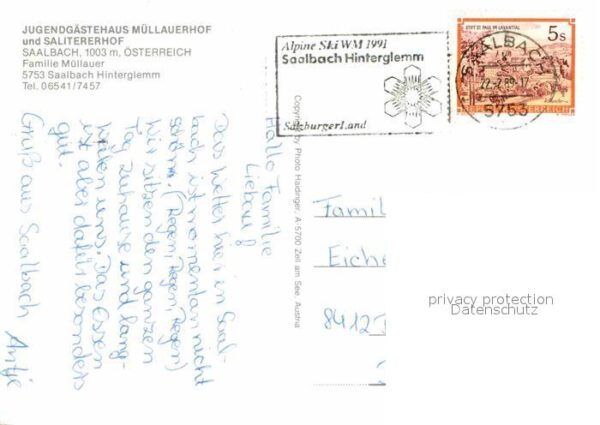 JUGENDGÄSTEHAUS MÜLLAUERHOF
und SALITERERHOF
SAALBACH, 1003 m, ÖSTERREICH
Familie Müllauer
5753 Saalbach Hinterglemm
Tel. 06541/7457
Alpine Ski WM 1991
Saalbach Hinterglemm
SalzburgerLand
STIFT ST. PAUL IM LAVANTTAL
5s
REPUBLIK ÖSTERREICH
SAALBACH
5753
Copyright by Photo Haidinger, A-5700 Zell am See, Austria
Hallo Familie
Liebau!
Das Wetter hier in Saal-
bach ist momentan nicht
schön. (Regen, Regen, Regen)
Wir sitzen den ganzen
Tag zuhause und lang-
weilen uns. Das Essen
ist aber dafür besonders
gut.
Gruß aus Saalbach Antje
Famil
Eiche
8412
privacy protection
Datenschutz